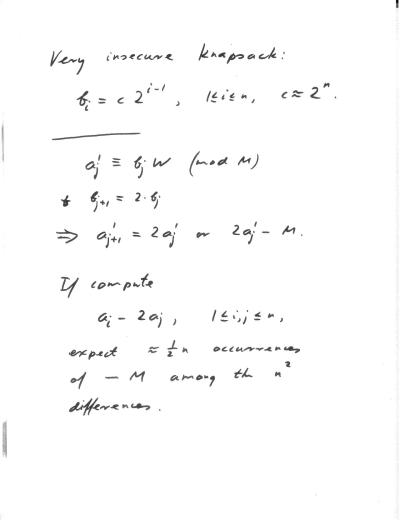 Very insecure knapsack:
b_i = c 2^{i-1}, 1≤i≤n, c≈2^n.
a'_j ≡ b_j W (mod M)
+ b_{j+1} = 2·b_j
⇒ a'_{j+1} = 2a'_j or 2a'_j - M.
If compute
a_i - 2a_j, 1≤i,j≤n,
expect ≈ ½ n occurrences
of - M among the n^2
differences.